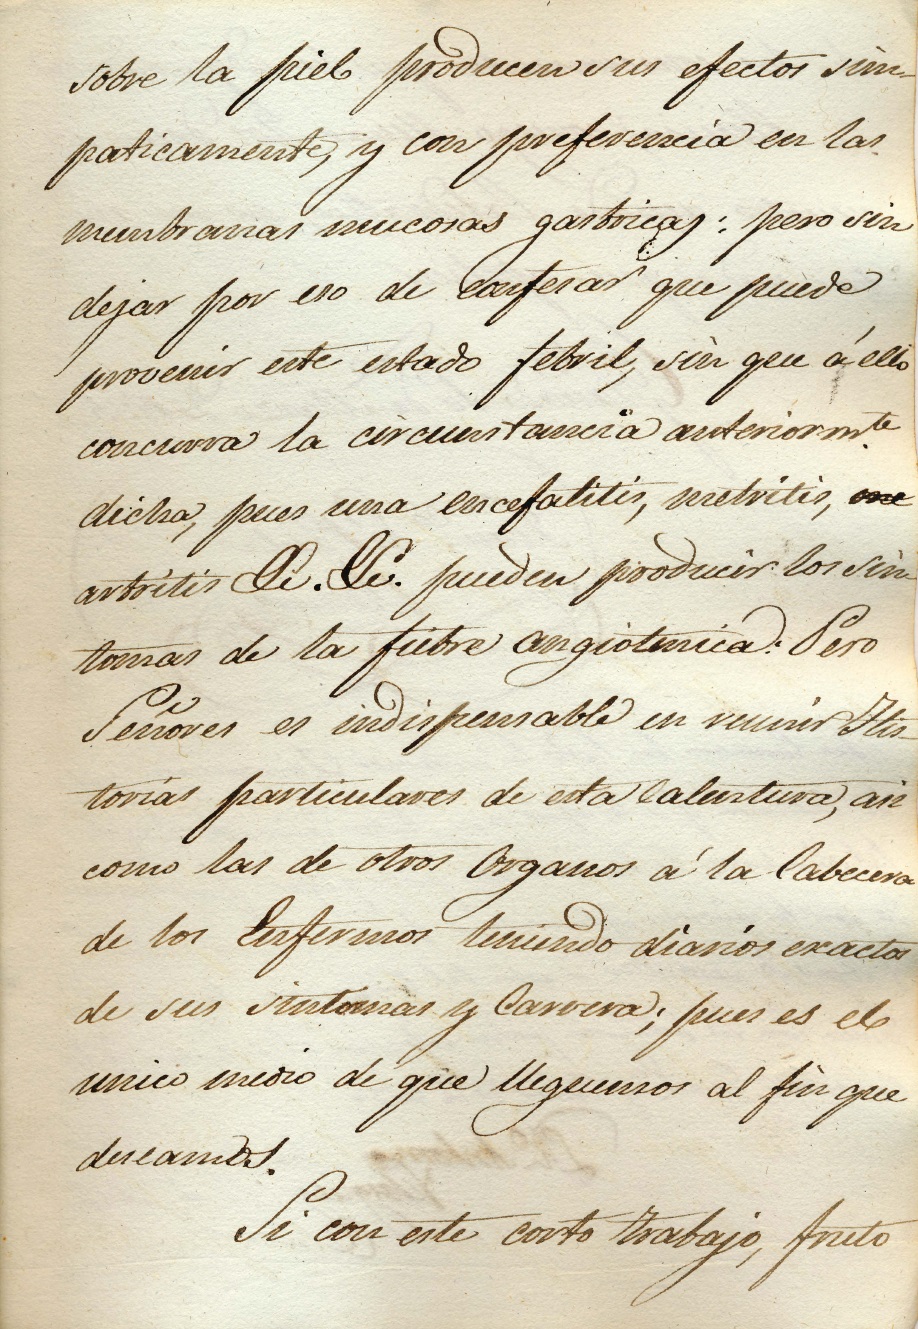 sobre la piel producen sus efectos sim-
paticamente, y con preferencia en las
membranas mucosas gastricas: pero sin
dejar por eso de confesar que puede
provenir este estado febril, sin que á ello
concurra la circunstancia anteriormte
dicha, pues una encefalitis, metritis,
artritis &. &. pueden producir los sin-
tomas de la fiebre angiotenica: Pero
Señores es indispensable en reunir His-
torias particulares de esta Calentura, asi
como las de otros Organos á la Cabecera
de los Enfermos teniendo diarios exactos
de sus sintomas y Carrera; pues es el
unico medio de que lleguemos al fin que
deseamos.
Si con este corto trabajo, fruto